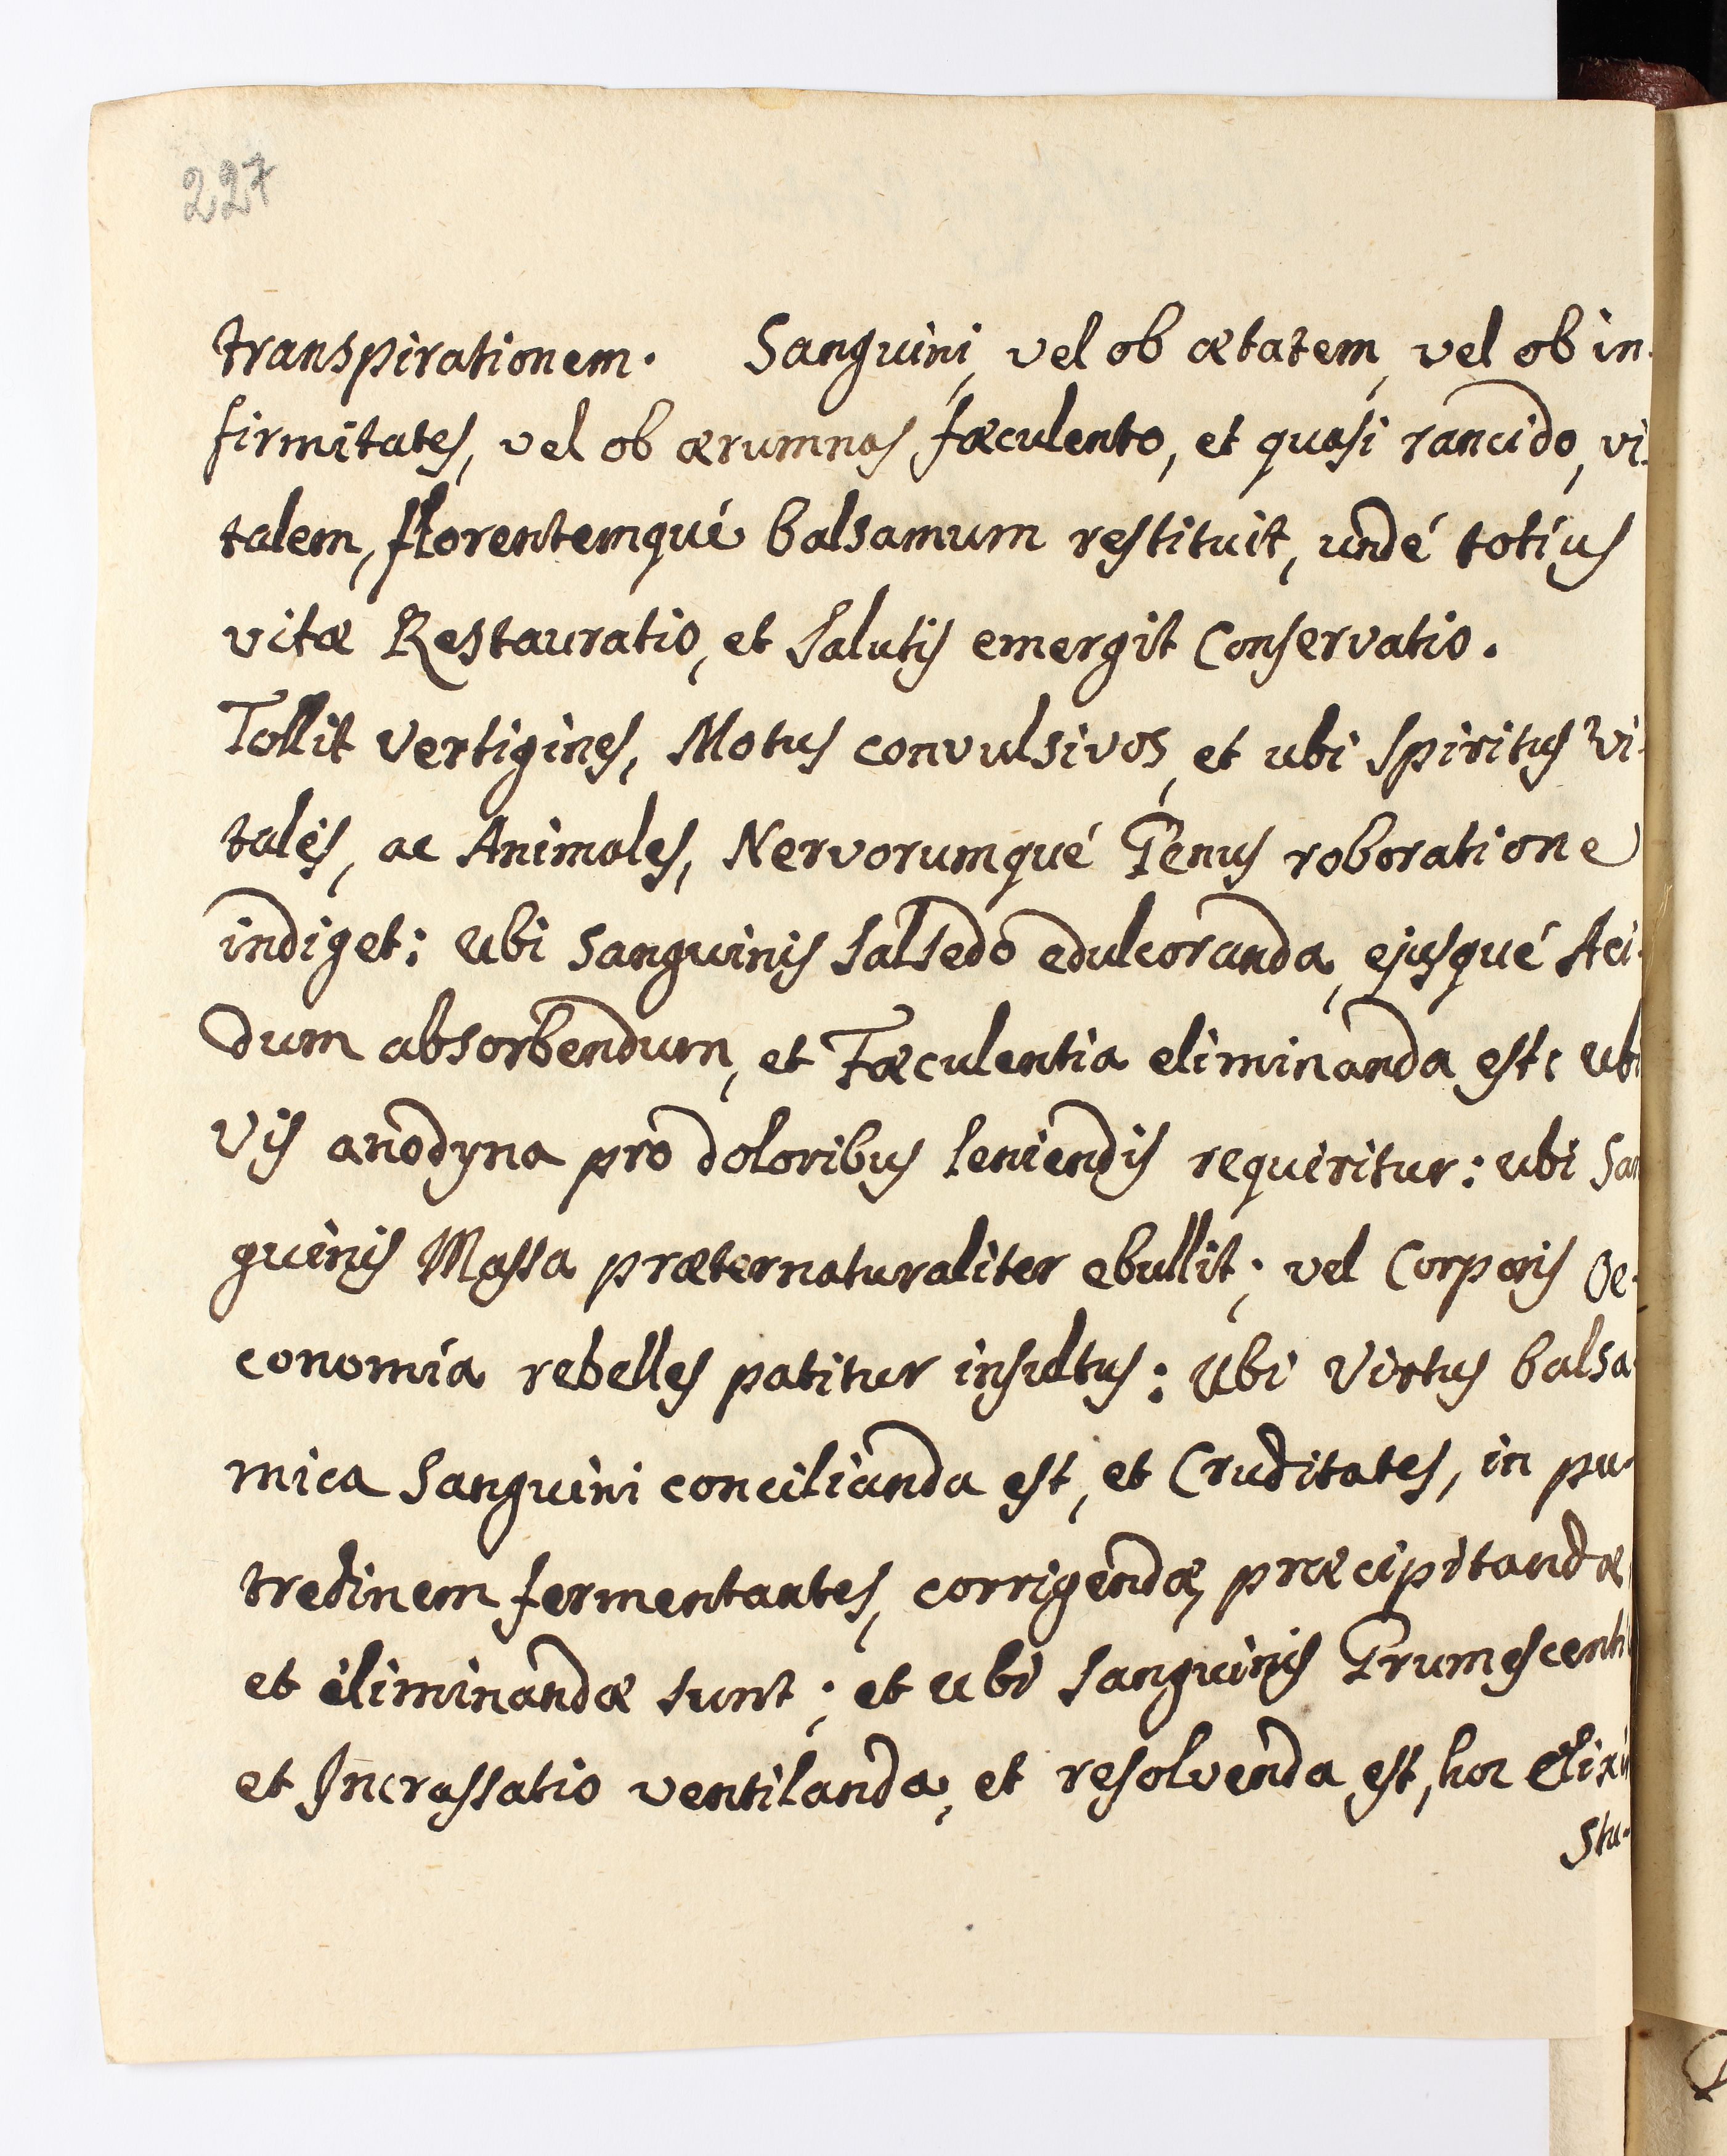 227
transpirationem. Sanguini, vel ob ætatem, vel ob in-
firmitates, vel ob ærumnas fæculento, et quasi rancido, vi-
talem, florentemqué balsamum restituit, undé totíus
vitæ Restauratio, et salutis emergit Conservatio.
Tollit Vertigines, Motus convulsivos, et ubi spiritus vi-
tales, ac Animales, Nervorumqué Genus roboratione
indiget: ubi sanguinis salsedo edulcoranda, ejusqué Aci-
dum absorbendum, et Fæculentia eliminanda est: ubi
Vis anodyna pro doloribus leniendis requiritur: ubi San
guinis Massa præternaturaliter ebullit; vel Corporis Oe-
conomia rebelles patitur insultus: Ubi Virtus balsa-
mica sanguini concilianda est, et Cruditates, in pu-
tredinem fermentantes, corrigendæ, præcipitandæ
et eliminandæ sunt; et ubi sanguinis Grumescenti
et Incrassatio ventilanda, et resolvenda est, hoc Elixir
Stu-